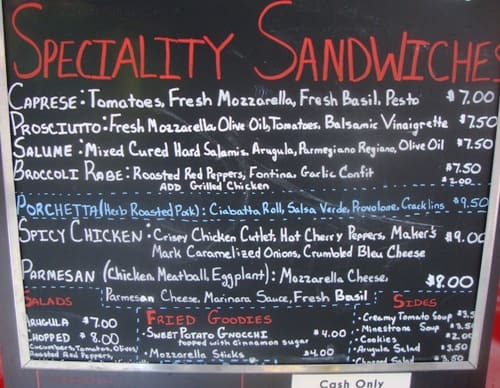 SPECIALITY SANDWICHES
CAPRESE: Tomatoes, Fresh Mozzarella, Fresh Basil, Pesto $7.00
PROSCIUTTO: Fresh Mozzarella, Olive Oil, Tomatoes, Balsamic Vinaigrette $7.50
SALUME: Mixed Cured Hard Salamis, Arugula, Parmegiano Regiano, Olive Oil $7.50
BROCCOLI RABE: Roasted Red Peppers, Fontina, Garlic Confit $7.50
ADD Grilled Chicken $2.00
PORCHETTA (Herb Roasted Pork): Ciabatta Roll, Salsa Verde, Provolone, Cracklins $9.50
SPICY CHICKEN: Crispy Chicken Cutlet, Hot Cherry Peppers, Maker's $9.00
Mark Caramelized Onions, Crumbled Bleu Cheese
PARMESAN (Chicken, Meatball, Eggplant): Mozzarella Cheese, $8.00
Parmesan Cheese, Marinara Sauce, Fresh Basil
SALADS
ARUGULA $7.00
CHOPPED $8.00
Cucumbers, Tomatoes, Olives,
Roasted Red Peppers,
FRIED GOODIES
SWEET POTATO GNOCCHI $4.00
topped with cinnamon sugar
Mozzarella Sticks $4.00
SIDES
Creamy Tomato Soup
Minestrone Soup
Cookies $2.00
Arugula Salad $3.50
Chopped Salad
Cash Only